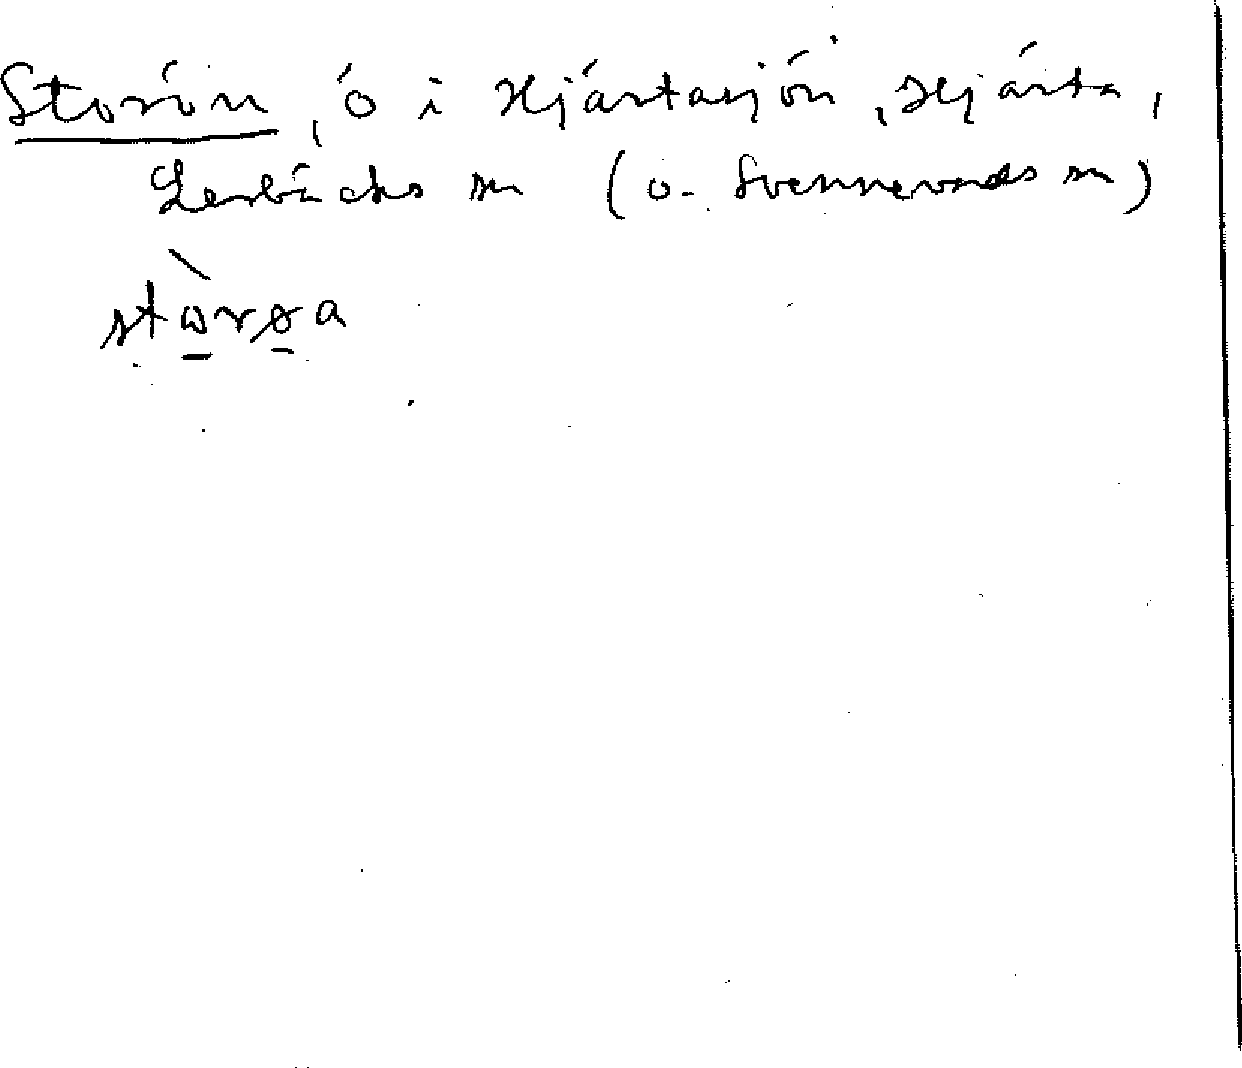 Storön, ö i Hjärtasjön, Hjärta,
Lerbäcks sn (o. Svennevads sn)
stωrøa